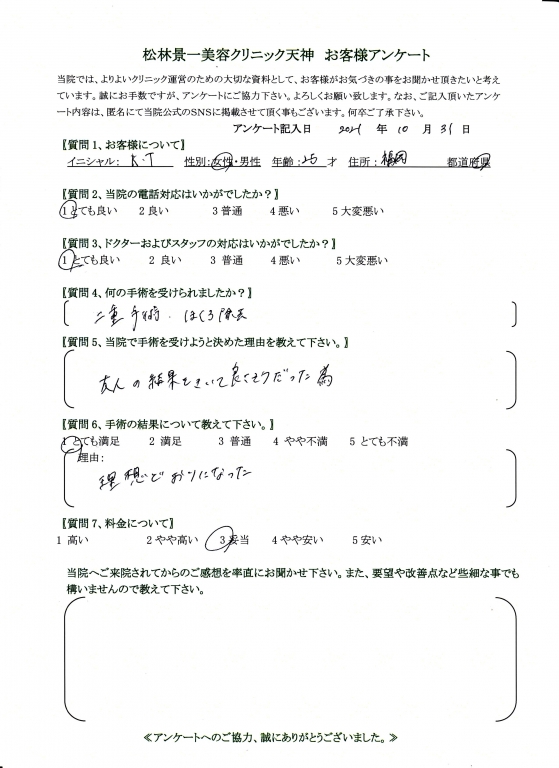 松林景一美容クリニック天神 お客様アンケート
当院では、よりよいクリニック運営のための大切な資料として、お客様がお気づきの事をお聞かせ頂きたいと考え
ています。誠にお手数ですが、アンケートにご協力下さい。よろしくお願い致します。なお、ご記入頂いたアンケ
ート内容は、匿名にて当院公式のSNSに掲載させて頂く事もございます。何卒ご了承下さい。
アンケート記入日 2021 年 10 月 31 日
【質問1、お客様について】
イニシャル： K.T 性別：女性・男性 年齢：25 才 住所：福岡 都道府県
【質問2、当院の電話対応はいかがでしたか？】
1 とても良い 2 良い 3 普通 4 悪い 5 大変悪い
【質問3、ドクターおよびスタッフの対応はいかがでしたか？】
1 とても良い 2 良い 3 普通 4 悪い 5 大変悪い
【質問4、何の手術を受けられましたか？】
二重手術．ほくろ除去
【質問5、当院で手術を受けようと決めた理由を教えて下さい。】
友人の結果をきいて良さそうだった為
【質問6、手術の結果について教えて下さい。】
1 とても満足 2 満足 3 普通 4 やや不満 5 とても不満
理由：
理想どおりになった
【質問7、料金について】
1 高い 2 やや高い 3 妥当 4 やや安い 5 安い
当院へご来院されてからのご感想を率直にお聞かせ下さい。また、要望や改善点など些細な事でも
構いませんので教えて下さい。
≪アンケートへのご協力、誠にありがとうございました。≫